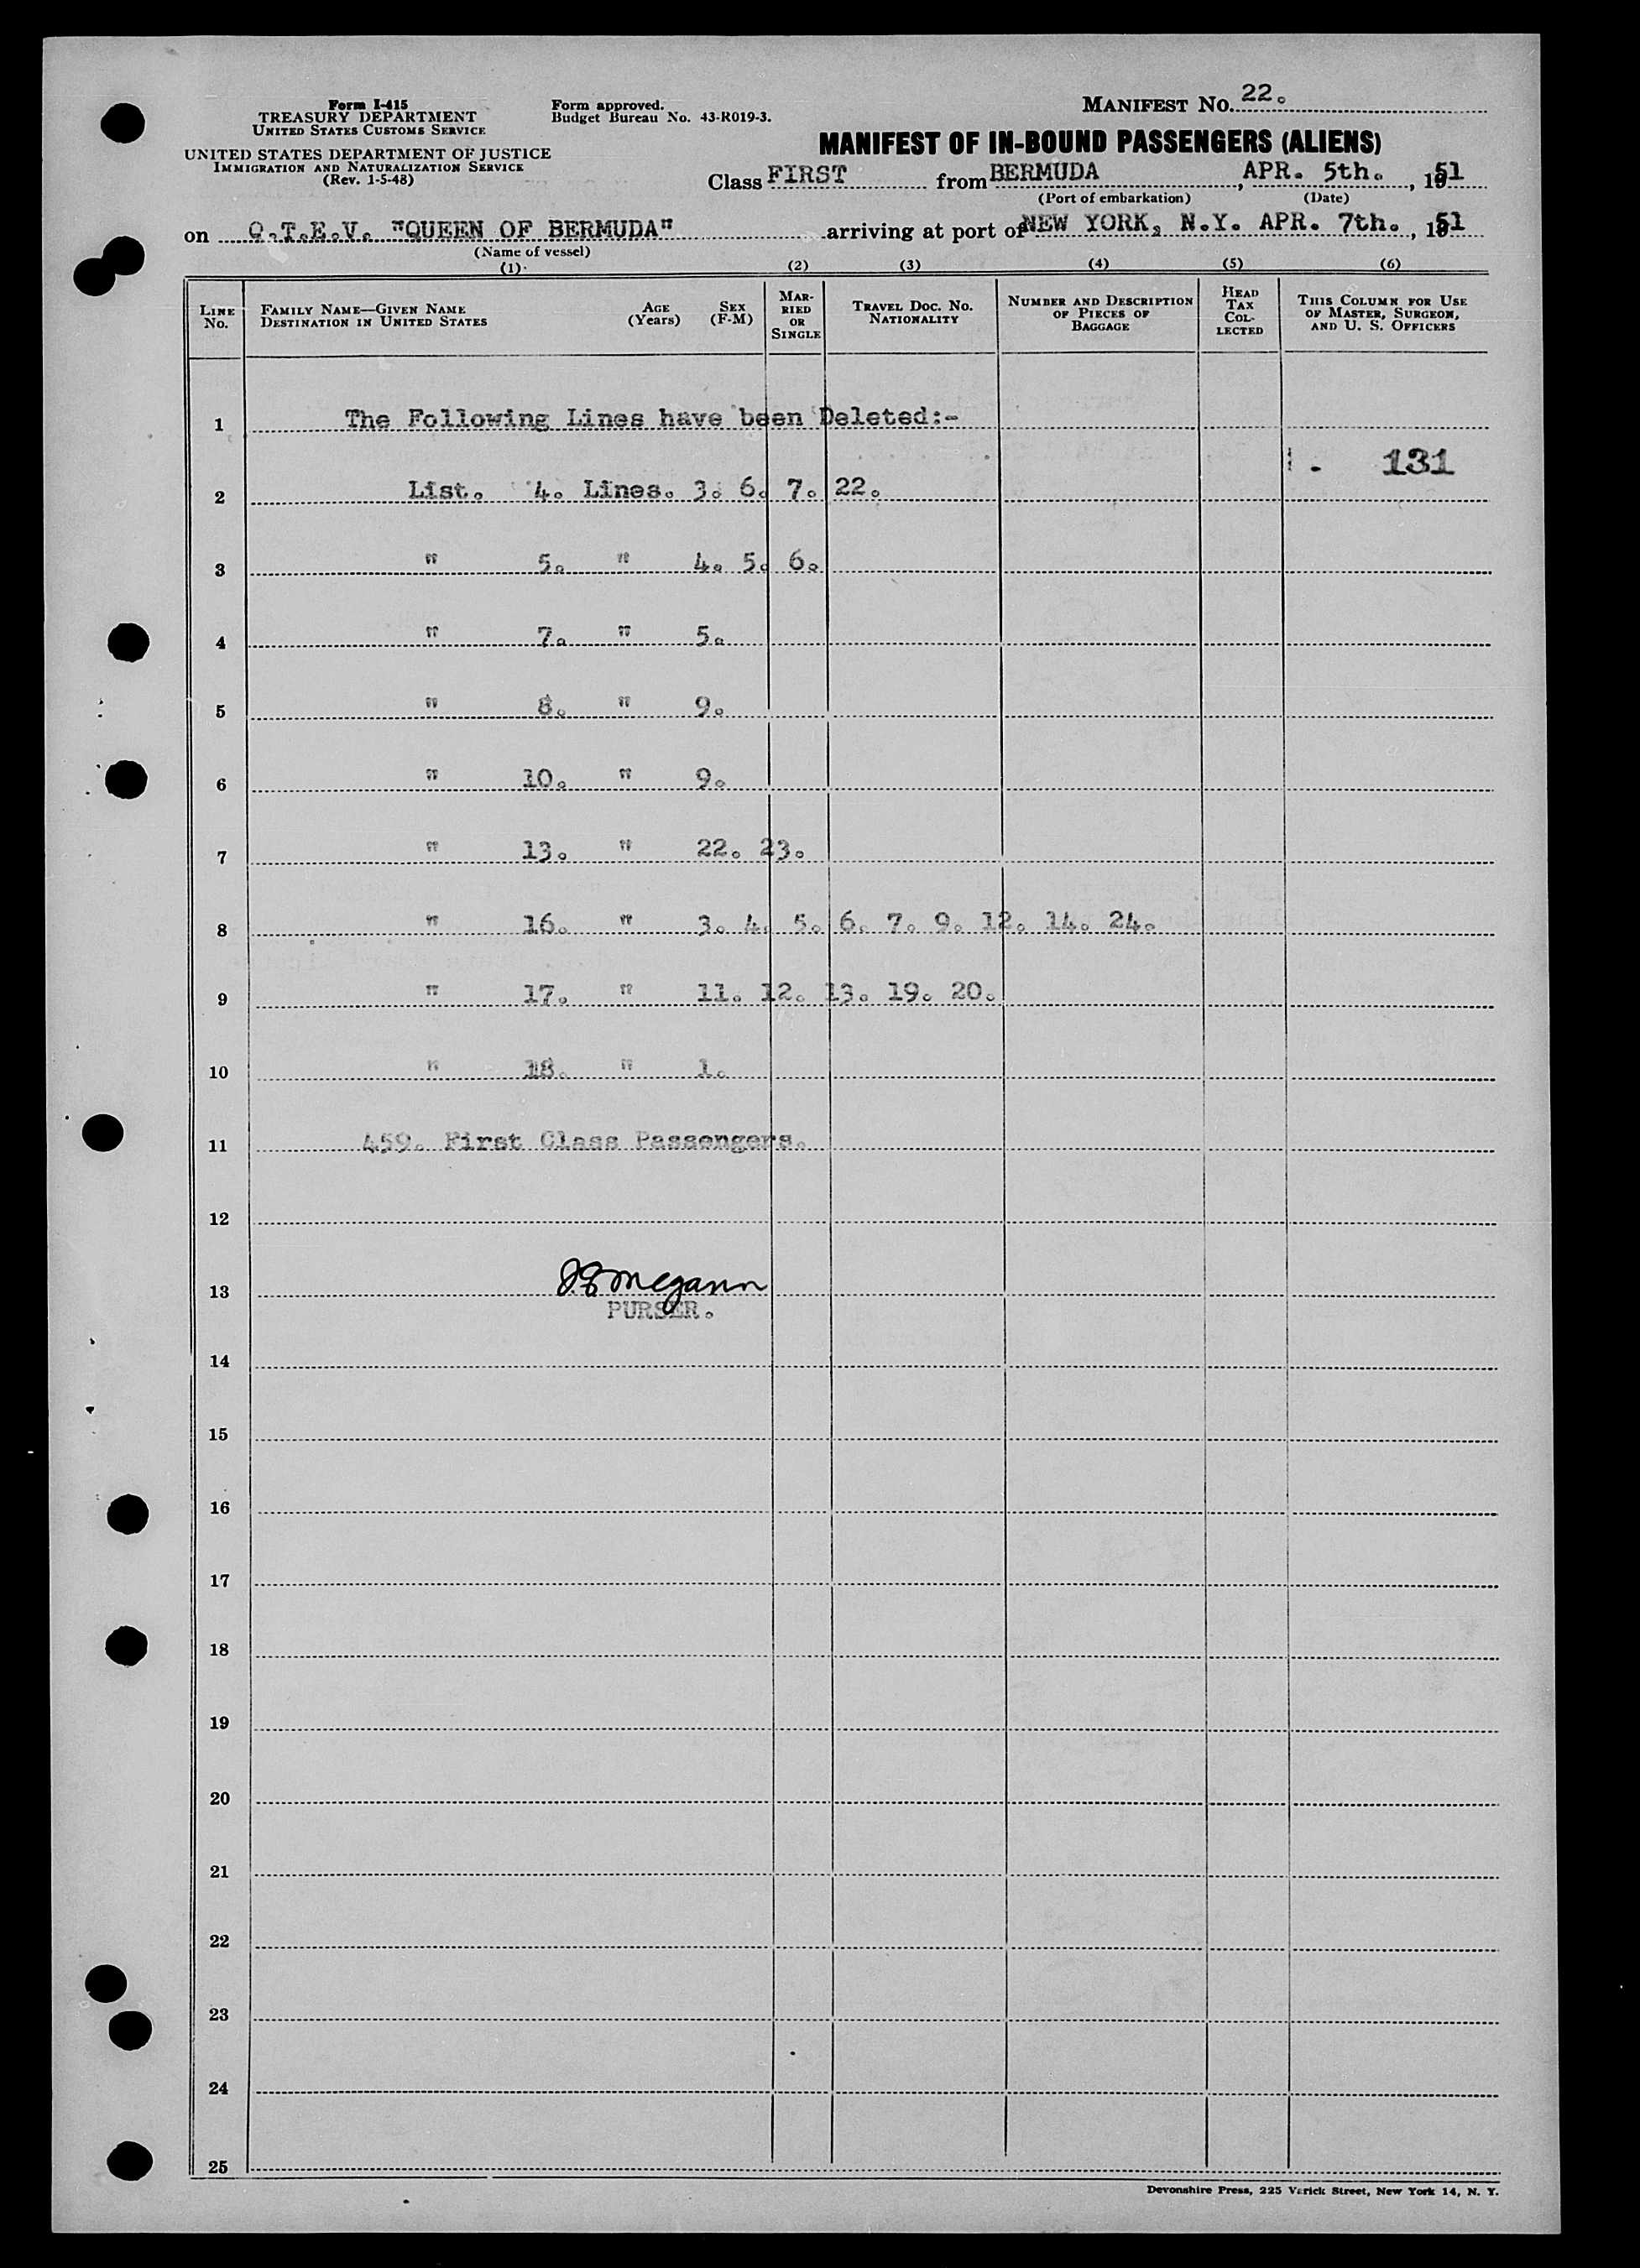 Form I-415
TREASURY DEPARTMENT
UNITED STATES CUSTOMS SERVICE
UNITED STATES DEPARTMENT OF JUSTICE
IMMIGRATION AND NATURALIZATION SERVICE
(Rev. 1-5-48)
Form approved.
Budget Bureau No. 43-R019-3.
MANIFEST No. 22.
MANIFEST OF IN-BOUND PASSENGERS (ALIENS)
Class FIRST from BERMUDA, APR. 5th., 1951
(Port of embarkation) (Date)
on Q.T.E.V. "QUEEN OF BERMUDA" arriving at port of NEW YORK, N.Y. APR. 7th., 1951
(Name of vessel)
(1) (2) (3) (4) (5) (6)
LINE No.
FAMILY NAME—GIVEN NAME
DESTINATION IN UNITED STATES
AGE (Years)
SEX (F-M)
MARRIED OR SINGLE
TRAVEL DOC. No.
NATIONALITY
NUMBER AND DESCRIPTION OF PIECES OF BAGGAGE
HEAD TAX COLLECTED
THIS COLUMN FOR USE OF MASTER, SURGEON, AND U. S. OFFICERS
1 The Following Lines have been Deleted:-
131
2 List. 4. Lines. 3. 6. 7. 22.
3 " 5. " 4. 5. 6.
4 " 7. " 5.
5 " 8. " 9.
6 " 10. " 9.
7 " 13. " 22. 23.
8 " 16. " 3. 4. 5. 6. 7. 9. 12. 14. 24.
9 " 17. " 11. 12. 13. 19. 20.
10 " 18. " 1.
11 459. First Class Passengers.
12
13 J.E. McGann
PURSER.
14
15
16
17
18
19
20
21
22
23
24
25
Devonshire Press, 225 Varick Street, New York 14, N. Y.